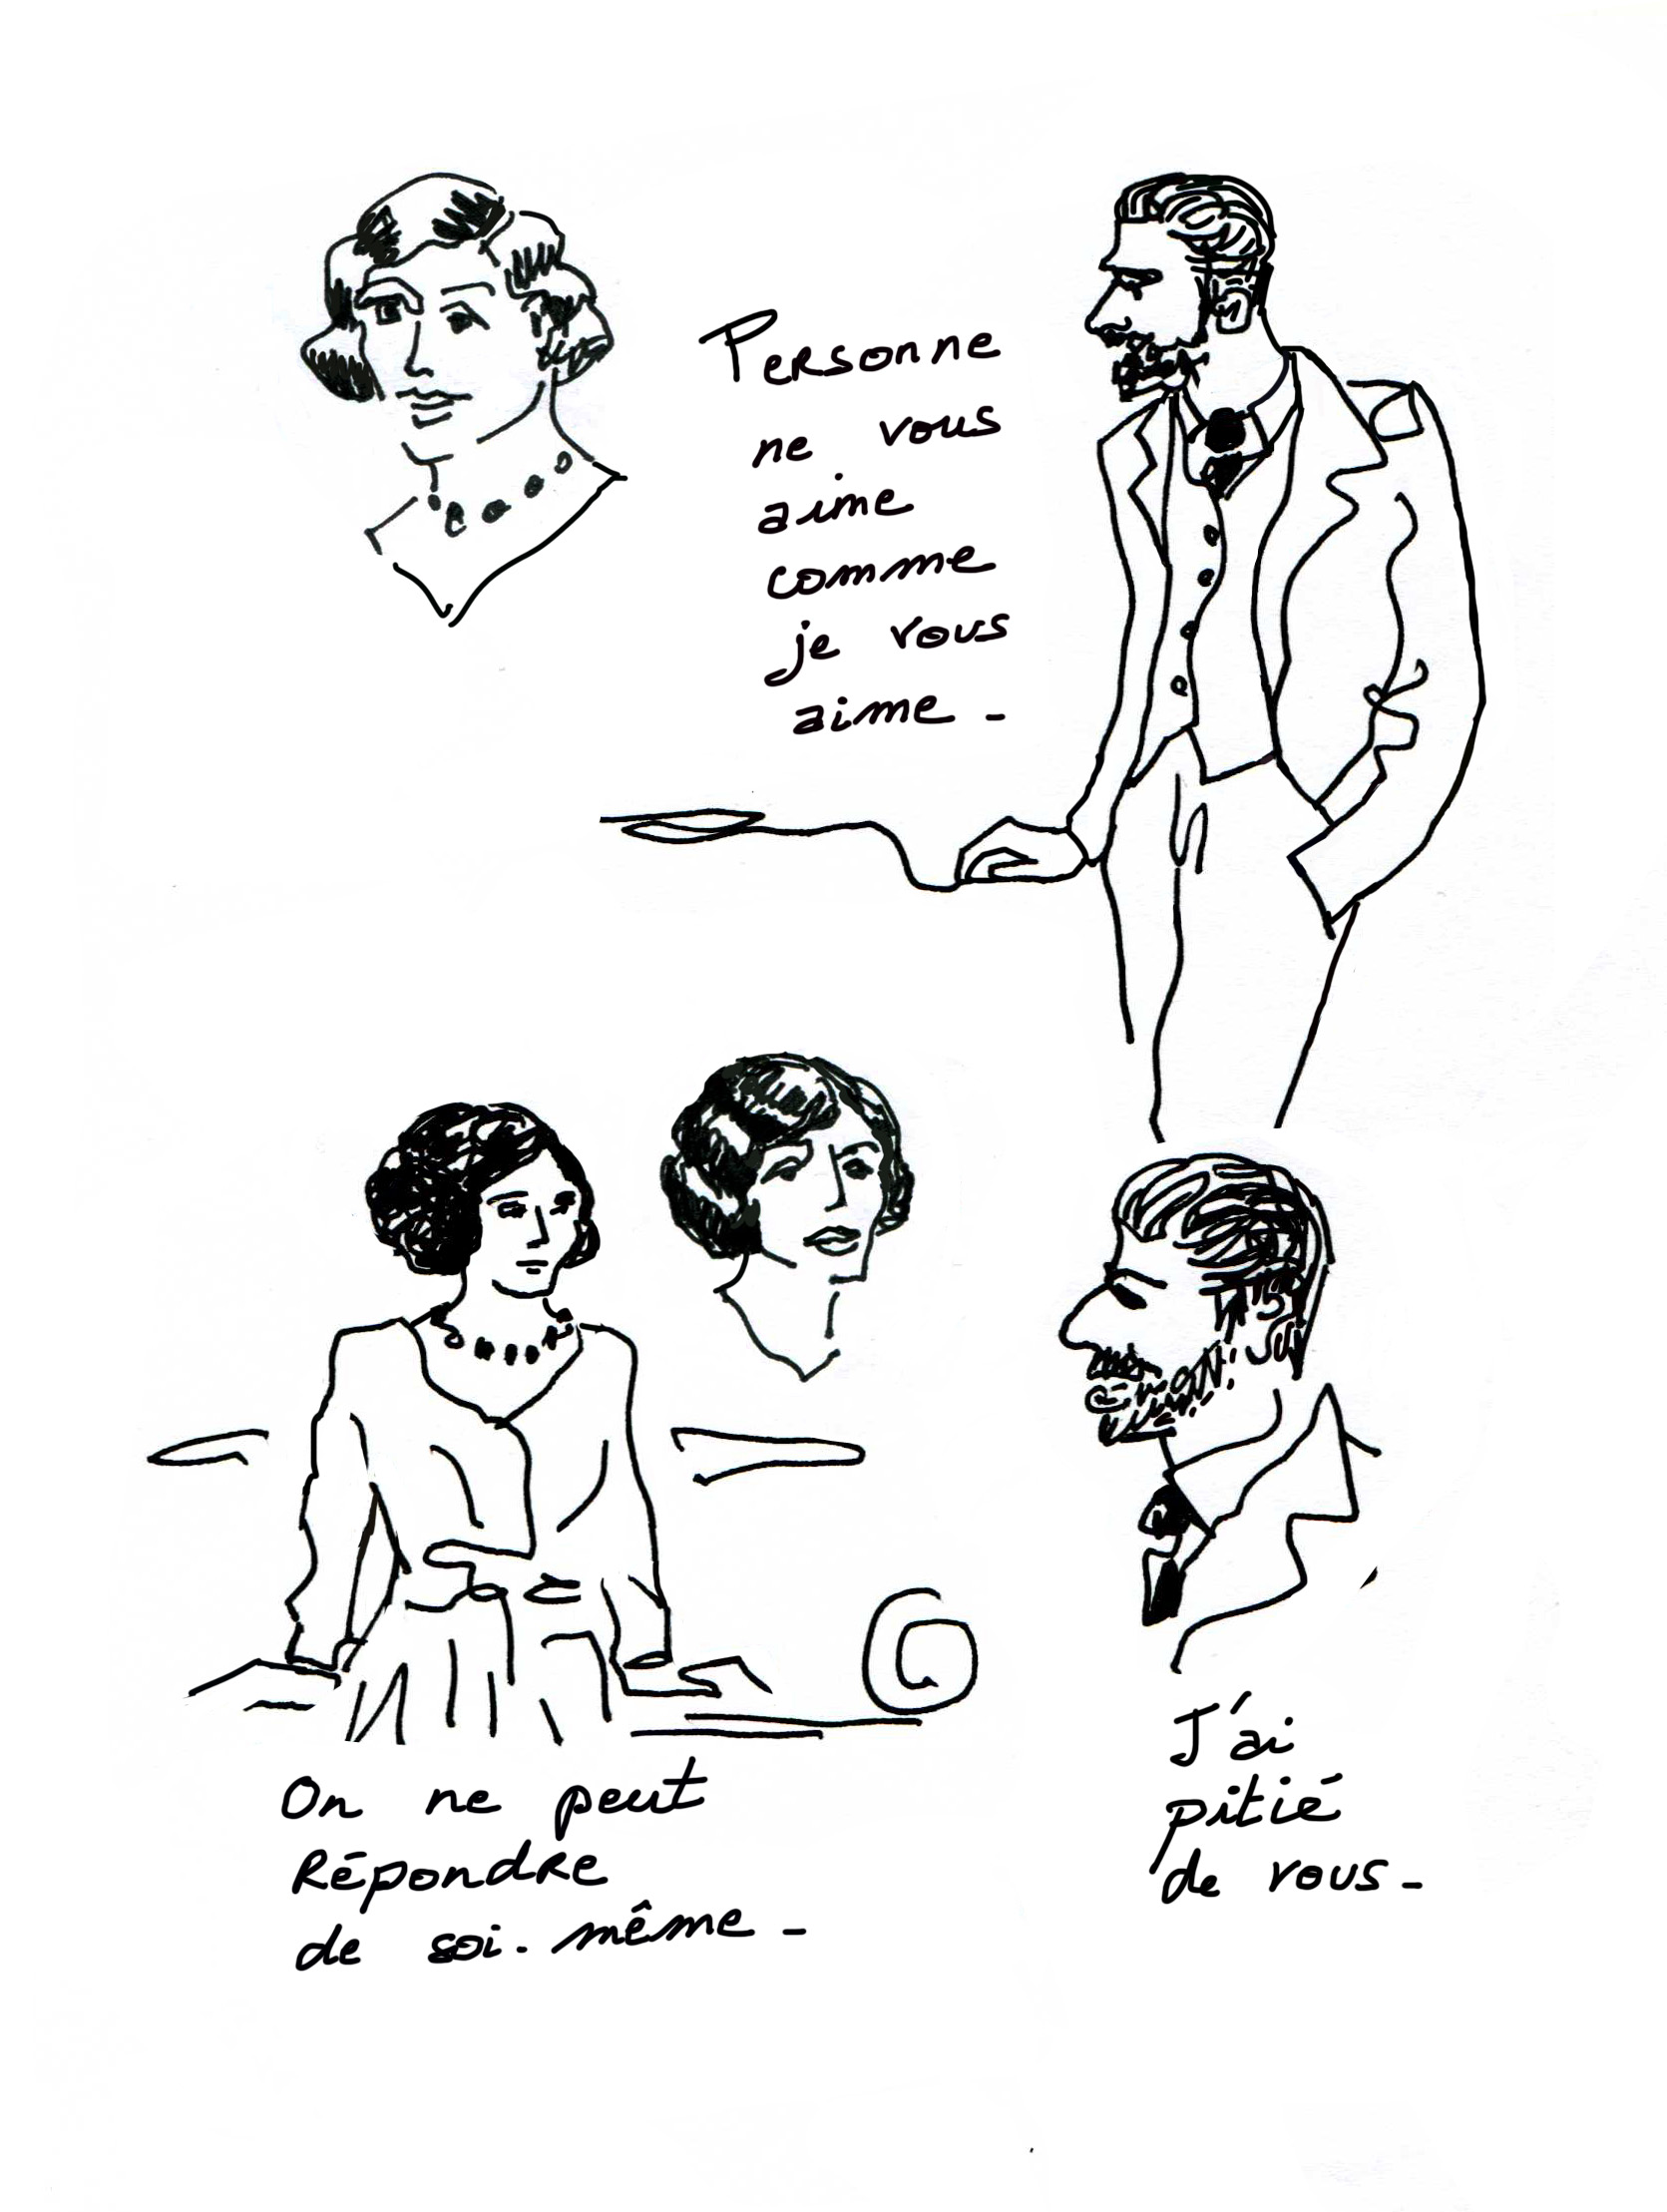 Personne
ne vous
aime
comme
je vous
aime -
On ne peut
Répondre
de soi-même -
J'ai
pitié
de vous -